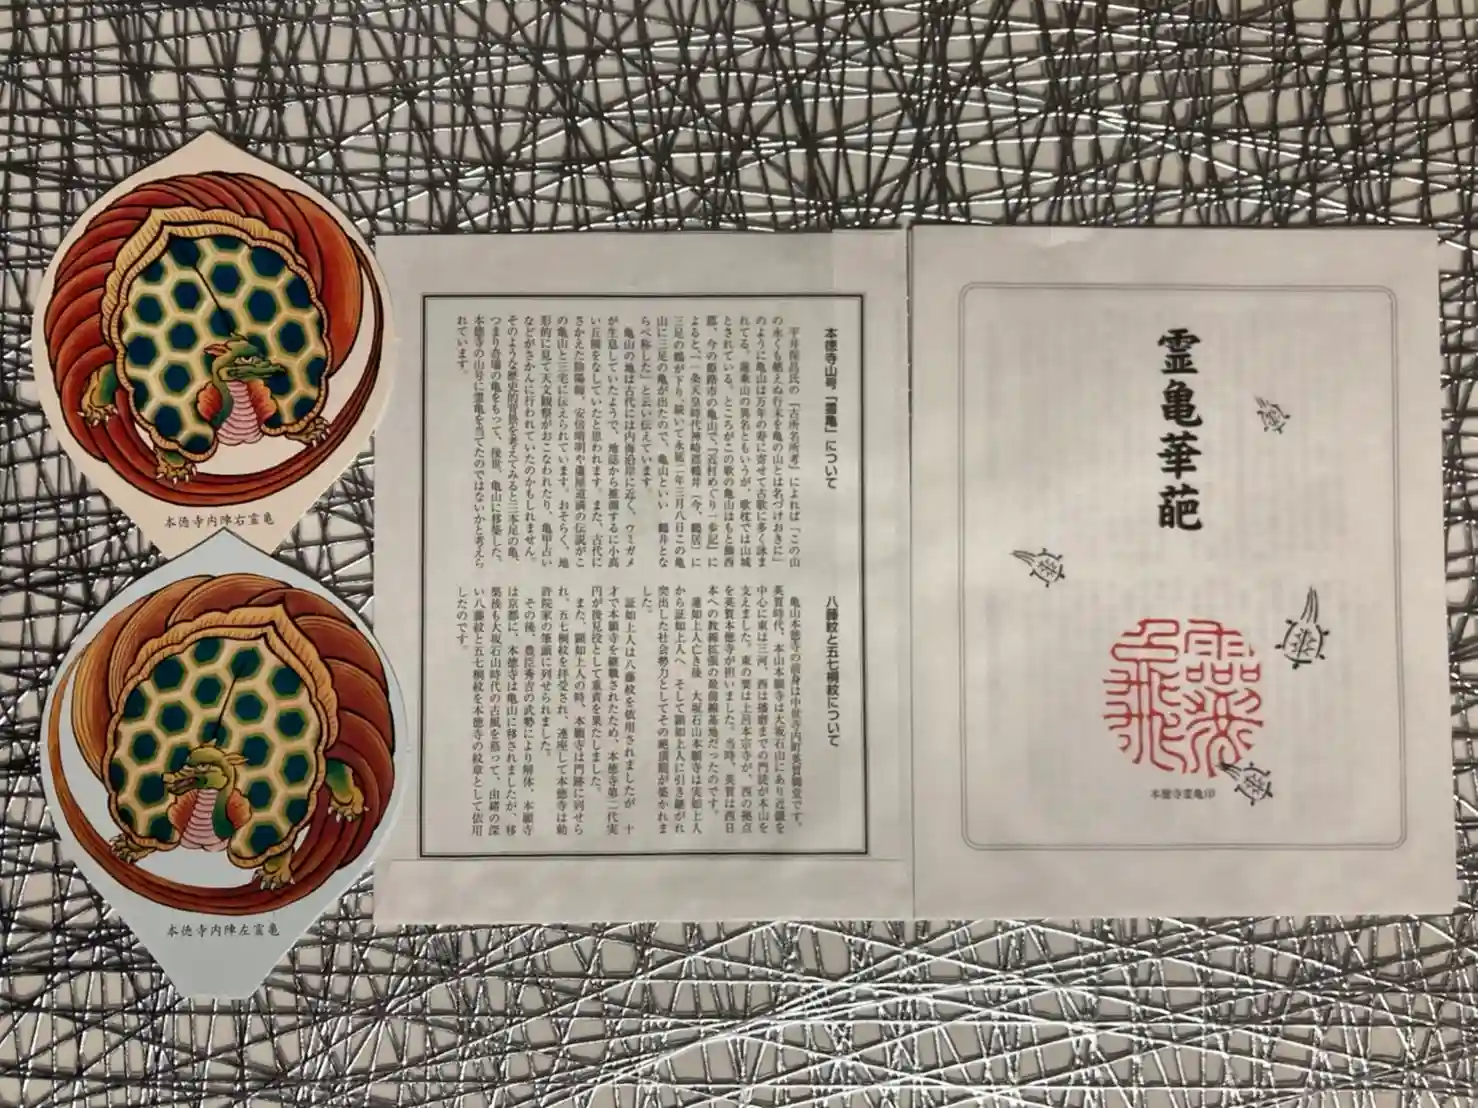 霊亀華葩
本徳寺霊亀印
本徳寺山号、「霊亀」について
平井保昌氏の「古所名所考」によれば「この山
の永くも絶えぬ行末を亀の山とは名づけおきに」
のように亀山は万年の寿に寄せて古歌に多く詠ま
れてる。蓬萊山の異名ともいうが、歌枕では山城
とされている。ところがこの歌の亀山はもと飾西
郡、今の姫路市の亀山で、『近村めぐり一歩記』に
よると、「一条天皇時代神崎巡鶴井(今、鶴居)に
三足の鶴が下り、続いて永延二年三月八日この亀
山に三足の亀が出たので、亀山といい 鶴井とな
らべ称した」と云い伝えています。
亀山の地は古代には内海沿岸に近く、ウミガメ
が生息していたようで、地誌から推測するに小高
い丘陵をなしていたと思われます。また、古代に
さかえた陰陽師、安倍晴明や蘆屋道満の伝説がこ
の亀山と三宅に伝えられています。おそらく、地
形的に見て天文観察がおこなわれたり、亀甲占い
などがさかんに行われていたのかもしれません。
そのような歴史的背景を考えてみると三本足の亀、
つまり奇瑞の亀をもって、後世、亀山に移築した、
本徳寺の山号に霊亀を当てたのではないかと考えら
れています。
八藤紋と五七桐紋について
亀山本徳寺の前身は中世寺内町英賀御堂です。
英賀時代、本山本願寺は大坂石山にあり近畿を
中心に東は三河、西は播磨までの門徒が本山を
支えました。東の要は土呂本宗寺が、西の拠点
を英賀本徳寺が担いました。当時、英賀は西日
本への教線拡張の最前線基地だったのです。
蓮如上人亡き後、大坂石山本願寺は実如上人
から証如上人へ、そして顕如上人に引き継がれ
突出した社会勢力としてその絶頂期が築かれま
した。
証如上人は八藤紋を依用されましたが、十
才で本願寺を継職されたため、本徳寺第二代実
円が後見役として重責を果たしました。
また、顕如上人の時、本願寺は門跡に列せら
れ、五七桐紋を拝受され、連座して本徳寺は勅
許院家の筆頭に列せられました。
その後、豊臣秀吉の武勢により解体、本願寺
は京都に、本徳寺は亀山に移されましたが、移
築後も大坂石山時代の古風を慕って、由緒の深
い八藤紋と五七桐紋を本徳寺の紋章として依用
したのです。
本徳寺内陣右霊亀
本徳寺内陣左霊亀